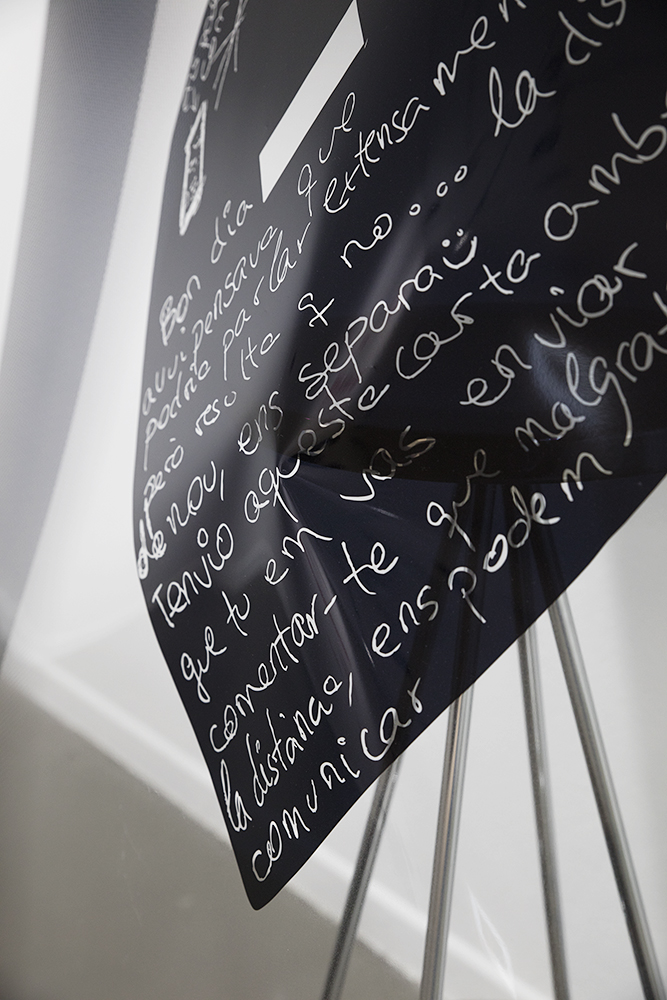 Bon dia
avui pensava que
podria parlar extensamen
però resulta q no... la dis
de nou, ens separa
T'envio aquesta carta amb
que tu em vas enviar
comentar-te que malgra
la distància, ens podem
comunicar